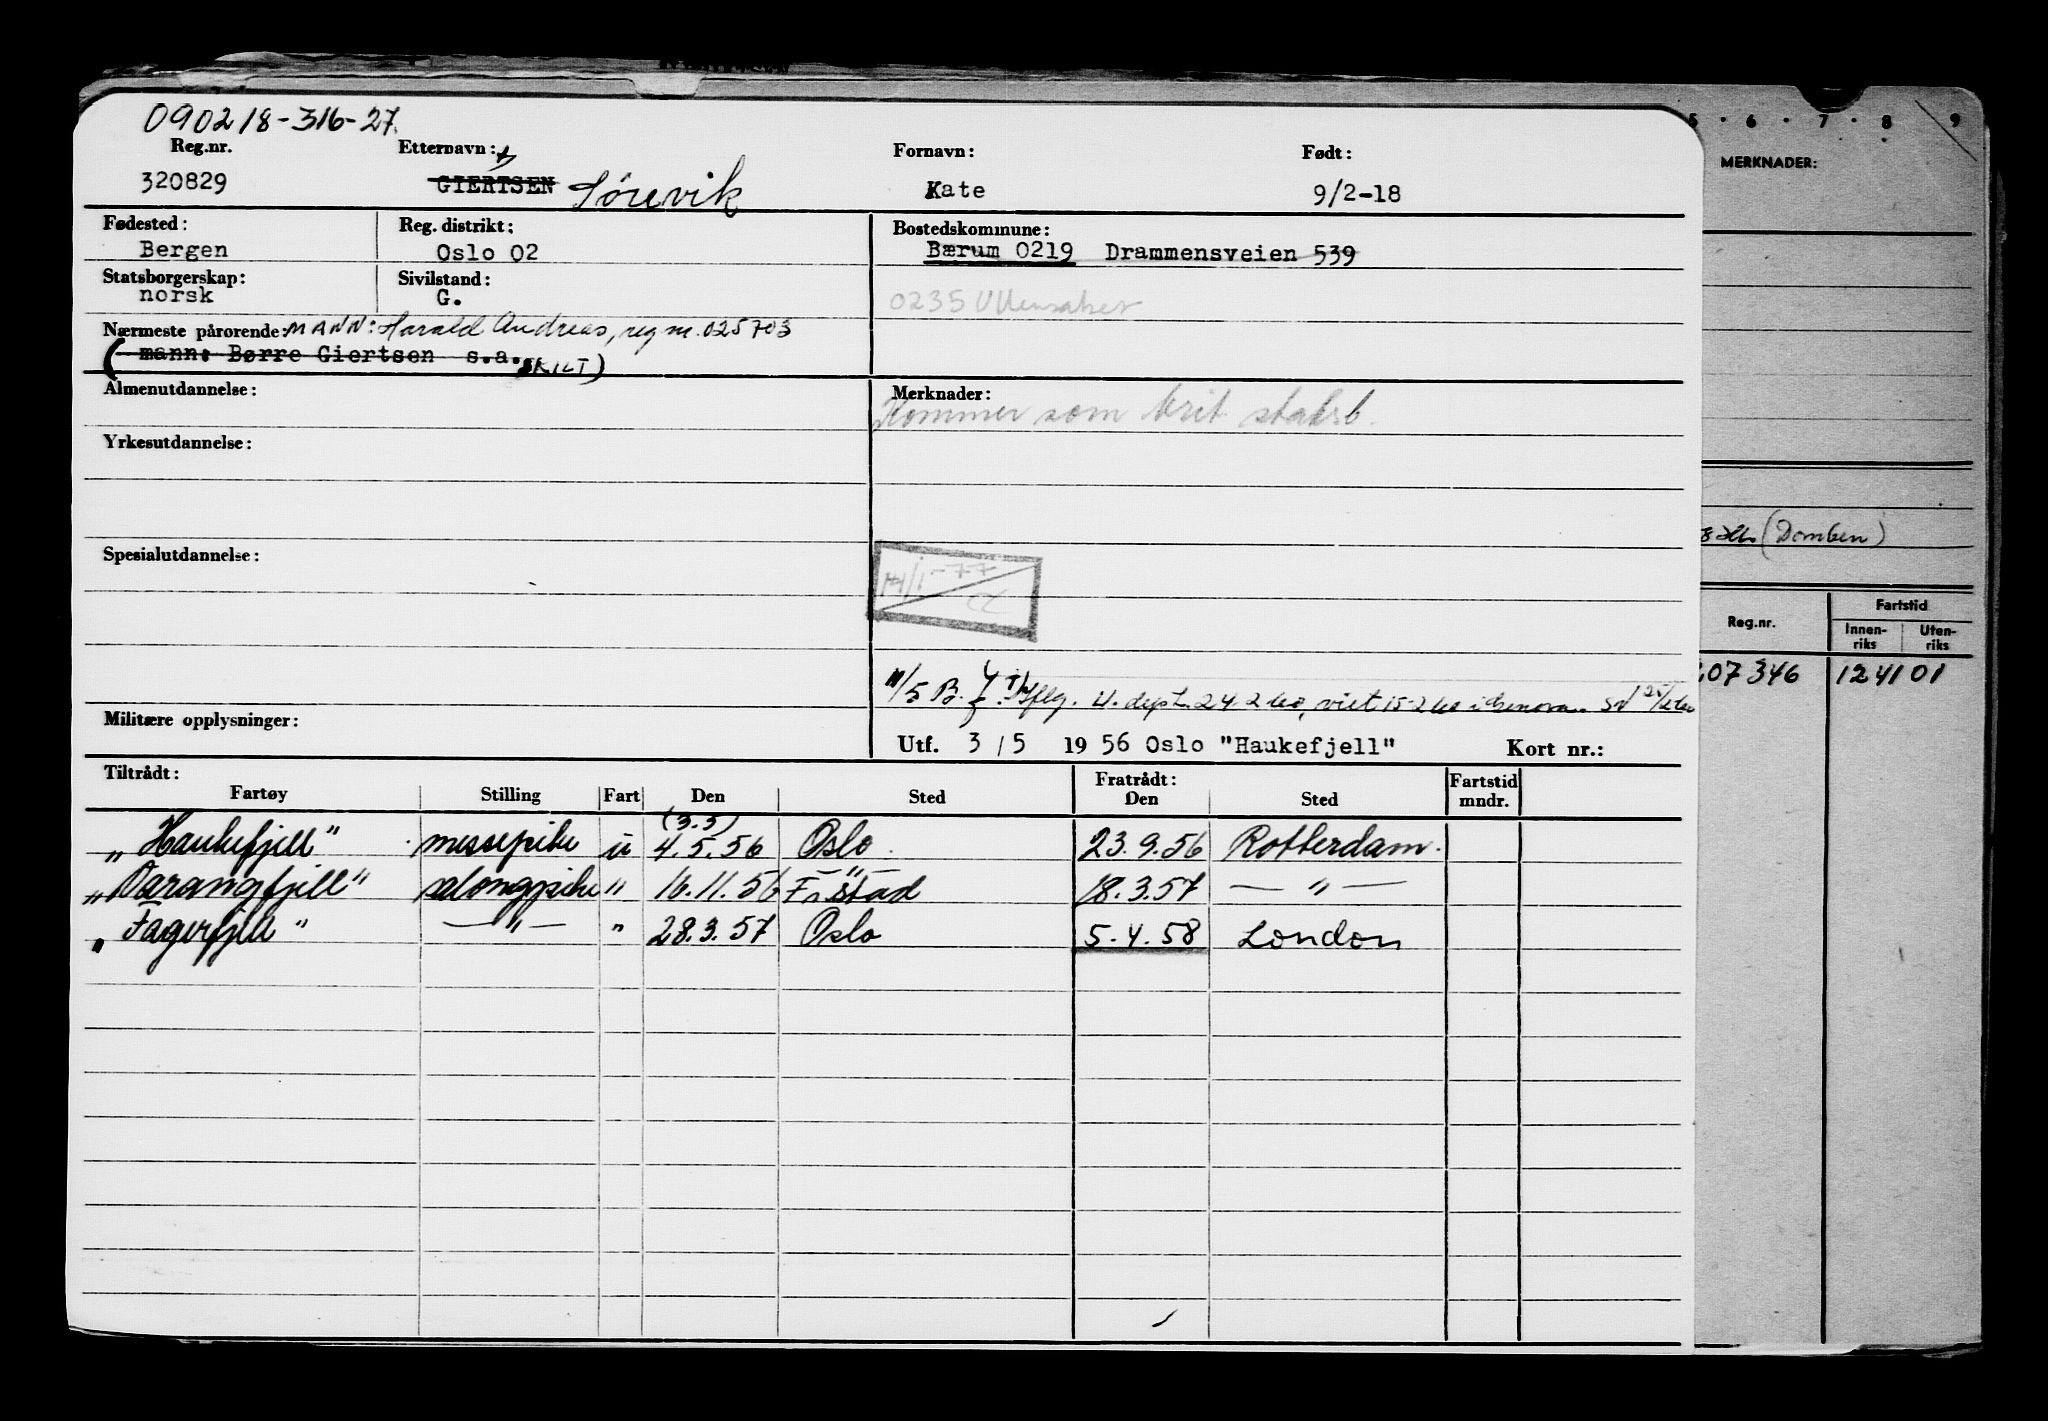 090218-316-27.
Reg.nr. Etternavn: Fornavn: Født:
320829 GIERTSEN Sörevik Kate 9/2-18
Fødested: Reg. distrikt: Bostedskommune:
Bergen Oslo 02 Bærum 0219 Drammensveien 539
Statsborgerskap: Sivilstand:
norsk G. 0235 Ullensaker
Nærmeste pårørende: MANN: Harald Andreas, reg nr. 025703
(mann: Børre Giertsen s.a. SKILT)
Almenutdannelse: Merknader:
Kommer som brit statsb.
Yrkesutdannelse:
Spesialutdannelse:
14/1-77
11/5 B. flg. U. dept. 24.2.60, viet 15-2-60 i Genova.
Militære opplysninger:
Utf. 3/5 1956 Oslo "Haukefjell" Kort nr.:
Tiltrådt: Fratrådt: Fartstid
Fartøy Stilling Fart Den Sted Den Sted mndr.
(3.3)
"Haukefjell" messepike u 4.5.56 Oslo. 23.9.56 Rotterdam.
"Varangfjell" salongpike " 16.11.56 F.stad 18.3.57 — " —
"Fagerfjell" — " — " 28.3.57 Oslo 5.4.58 London
5 . 6 . 7 . 8 9
MERKNADER:
(Domben)
Reg.nr. Fartstid
Innen-riks Uten-riks
07346 124101